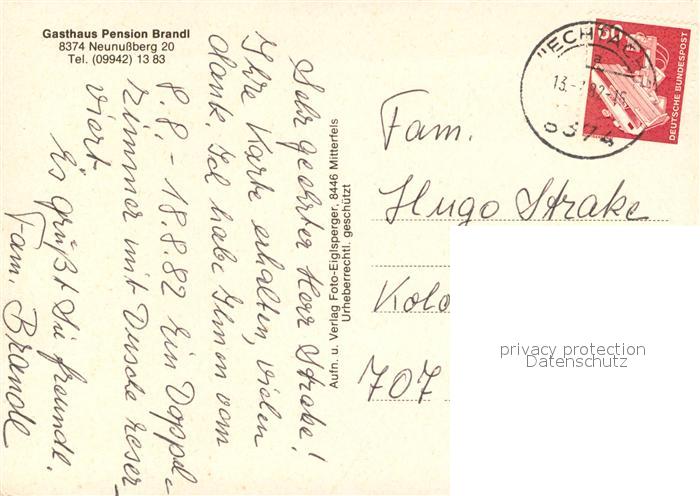 Gasthaus Pension Brandl
8374 Neunußberg 20
Tel. (09942) 13 83
Sehr geehrter Herr Strake!
Ihre Karte erhalten, vielen
dank. Ich habe Ihnen vom
8.8. - 18.8.82 Ein Doppel-
zimmer mit Dusche reser-
viert
Es grüßt Sie freundl.
Fam. Brandl
Aufn. u. Verlag Foto-Eiglsperger, 8446 Mitterfels
Urheberrechtl. geschützt
60
DEUTSCHE BUNDESPOST
8374
Fam.
Hugo Strake
Kolo
707
privacy protection
Datenschutz